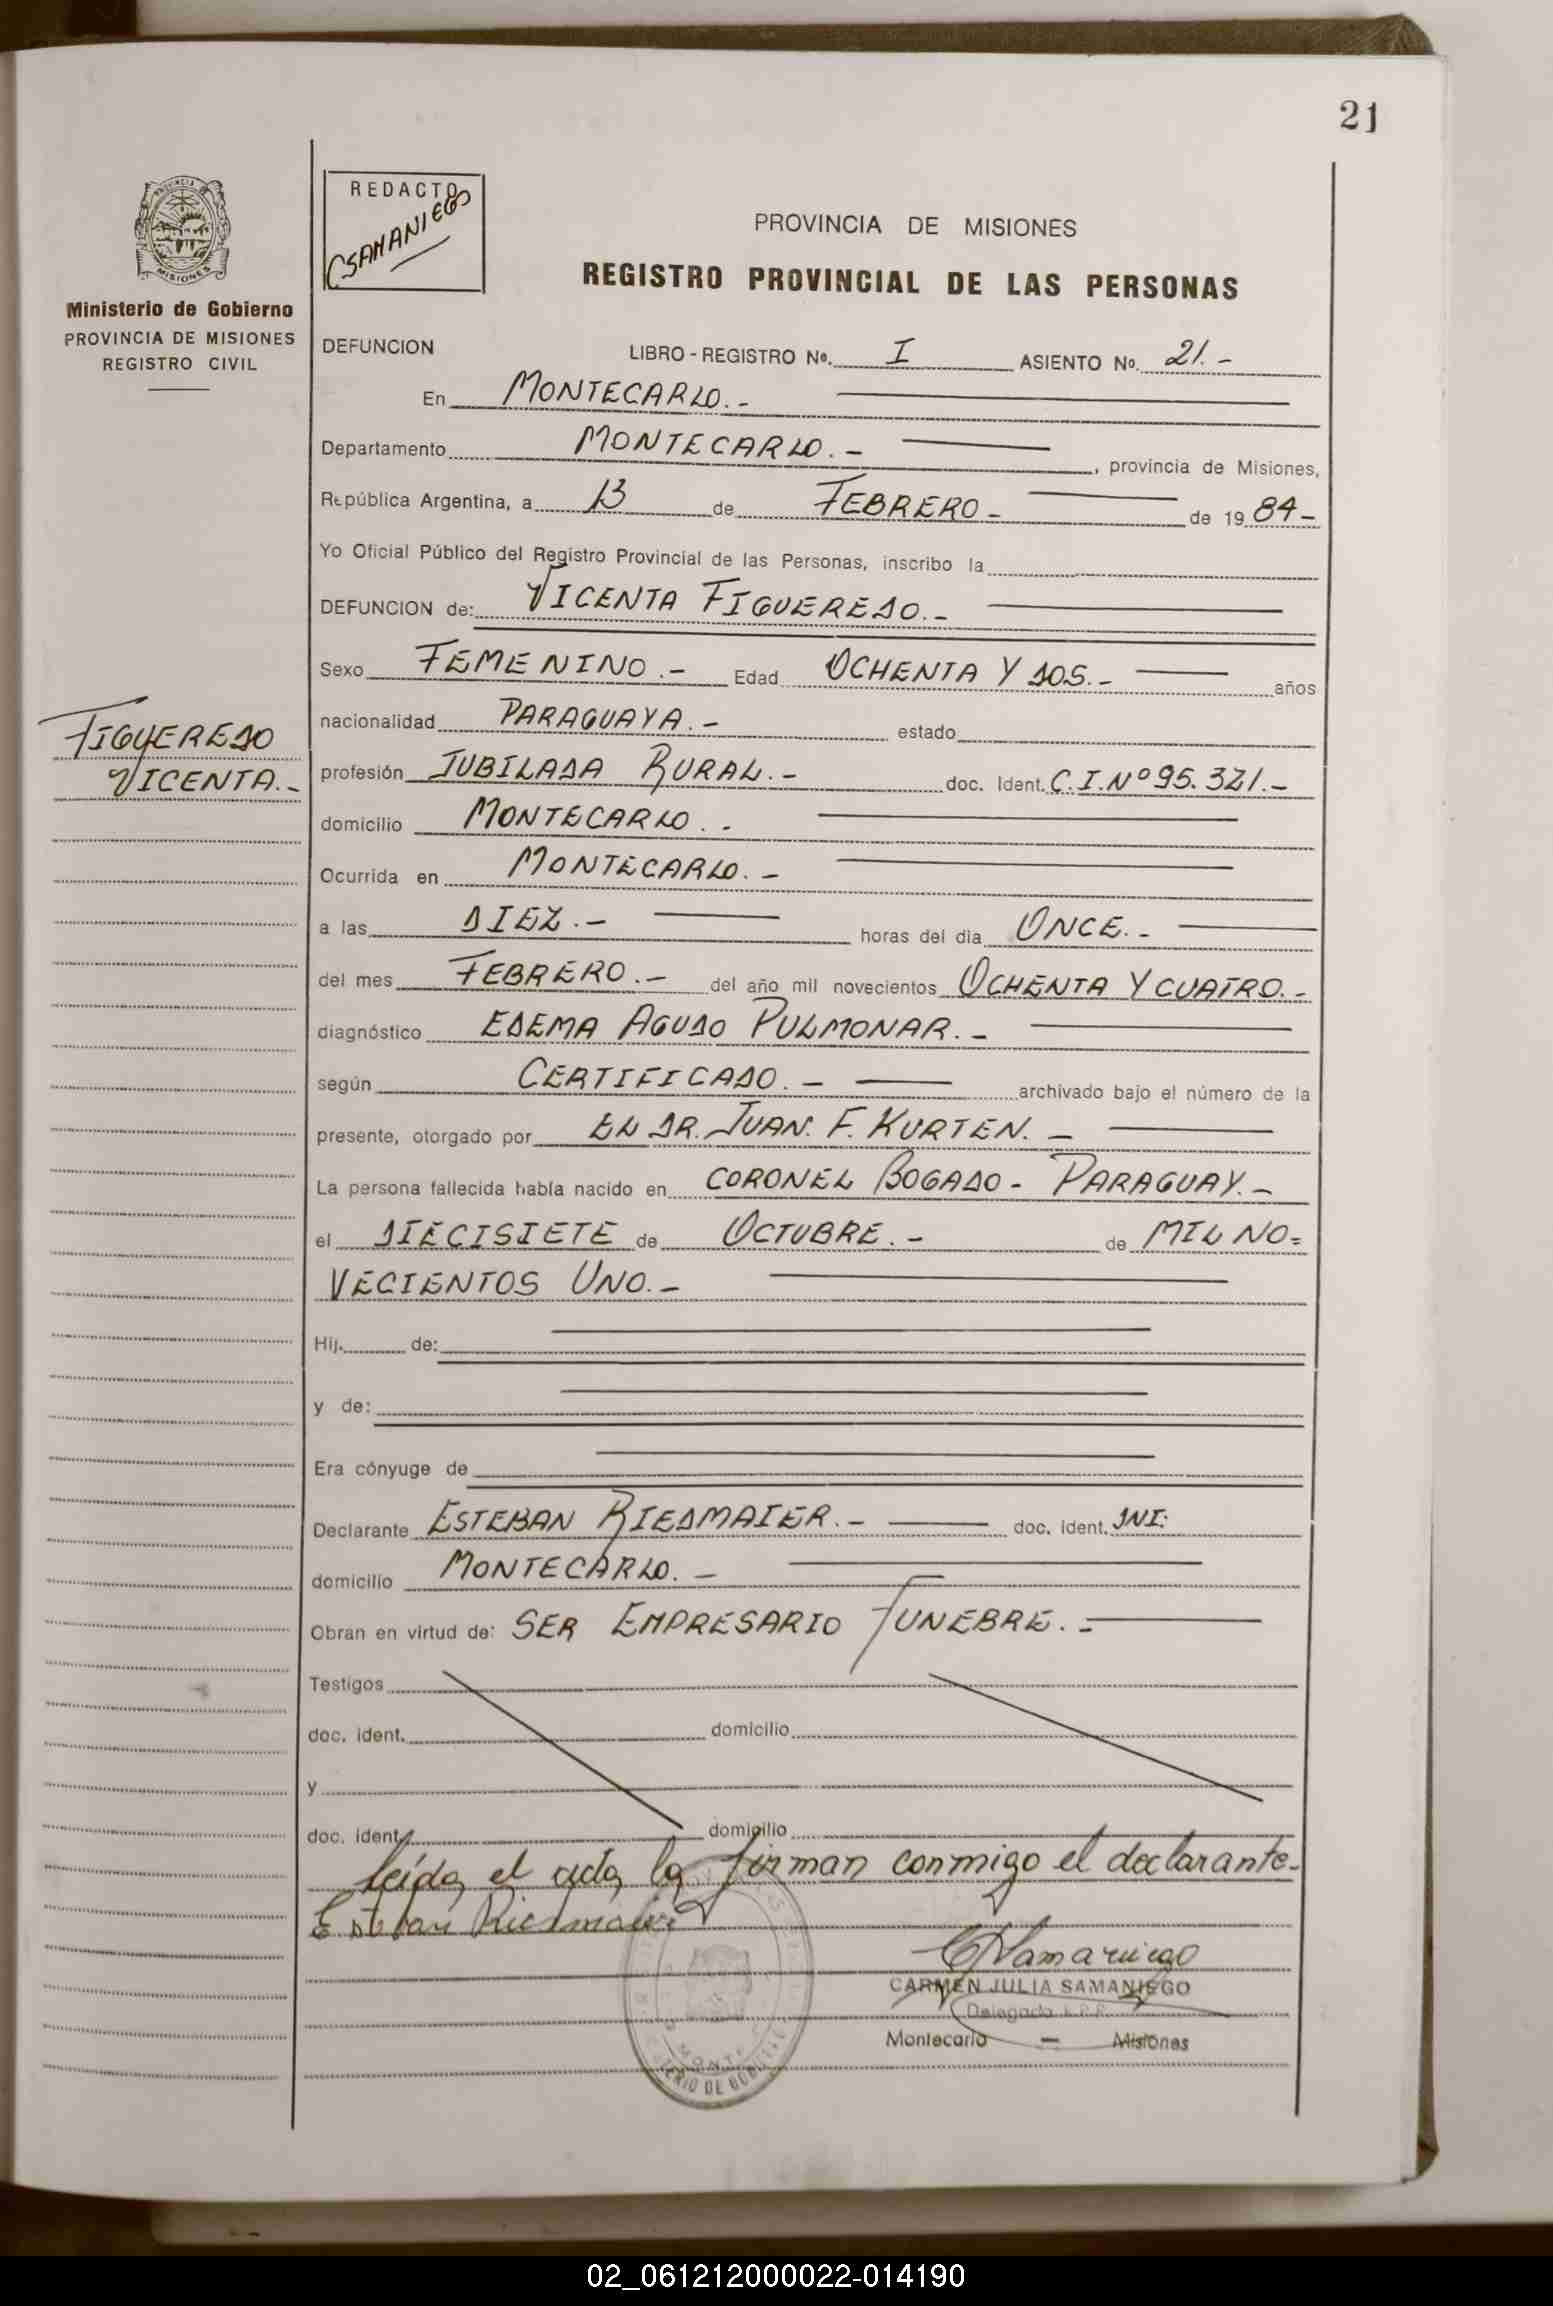 21
PROVINCIA
MISIONES
Ministerio de Gobierno
PROVINCIA DE MISIONES
REGISTRO CIVIL
REDACTO
CSAMANIEGO
PROVINCIA DE MISIONES
REGISTRO PROVINCIAL DE LAS PERSONAS
DEFUNCION LIBRO - REGISTRO Nº. I ASIENTO Nº. 21.-
En MONTECARLO.-
Departamento MONTECARLO.- , provincia de Misiones,
República Argentina, a 13 de FEBRERO - de 1984-
Yo Oficial Público del Registro Provincial de las Personas, inscribo la
DEFUNCION de: VICENTA FIGUEREDO.-
Sexo FEMENINO.- Edad OCHENTA Y DOS.- años
nacionalidad PARAGUAYA.- estado
FIGUEREDO
VICENTA.-
profesión JUBILADA RURAL.- doc. Ident. C.I.Nº 95.321.-
domicilio MONTECARLO.-
Ocurrida en MONTECARLO.-
a las DIEZ.- horas del día ONCE.-
del mes FEBRERO.- del año mil novecientos OCHENTA Y CUATRO.-
diagnóstico EDEMA AGUDO PULMONAR.-
según CERTIFICADO.- archivado bajo el número de la
presente, otorgado por EL DR. JUAN. F. KURTEN.-
La persona fallecida había nacido en CORONEL BOGADO - PARAGUAY.-
el DIECISIETE de OCTUBRE.- de MIL NO=
VECIENTOS UNO.-
Hij. de:
y de:
Era cónyuge de
Declarante ESTEBAN RIEDMAIER.- doc. ident. DNI:
domicilio MONTECARLO.-
Obran en virtud de: SER EMPRESARIO FUNEBRE.-
Testigos
doc. ident. domicilio
y
doc. ident. domicilio
leída el acta, la firman conmigo el declarante-
Esteban Riedmaier
CJSamaniego
CARMEN JULIA SAMANIEGO
Delegada R.P.P.
Montecarlo - Misiones
02_061212000022-014190